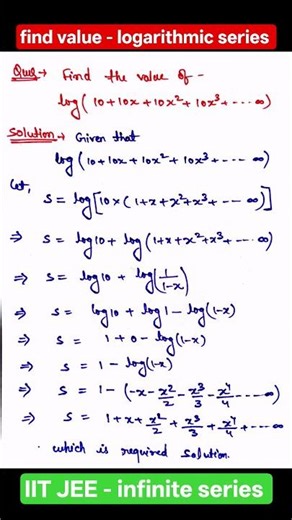 find value - logarithmic series
Que → Find the value of -
log ( 10+10x+10x²+10x³+ ---- ∞)
Solution → Given that
log ( 10+10x+10x²+10x³+ --- ∞)
Let,
S = log[10×(1+x+x²+x³+ -- ∞)]
⇒ S = log10 + log(1+x+x²+x³+ --- ∞)
⇒ S = log10 + log(1/1-x)
⇒ S = log10 + log1 - log(1-x)
⇒ S = 1+0 - log(1-x)
⇒ S = 1 - log(1-x)
⇒ S = 1 - (-x - x²/2 - x³/3 - x⁴/4 ---- ∞)
⇒ S = 1 + x + x²/2 + x³/3 + x⁴/4 + --- ∞
. which is required solution.
IIT JEE - infinite series